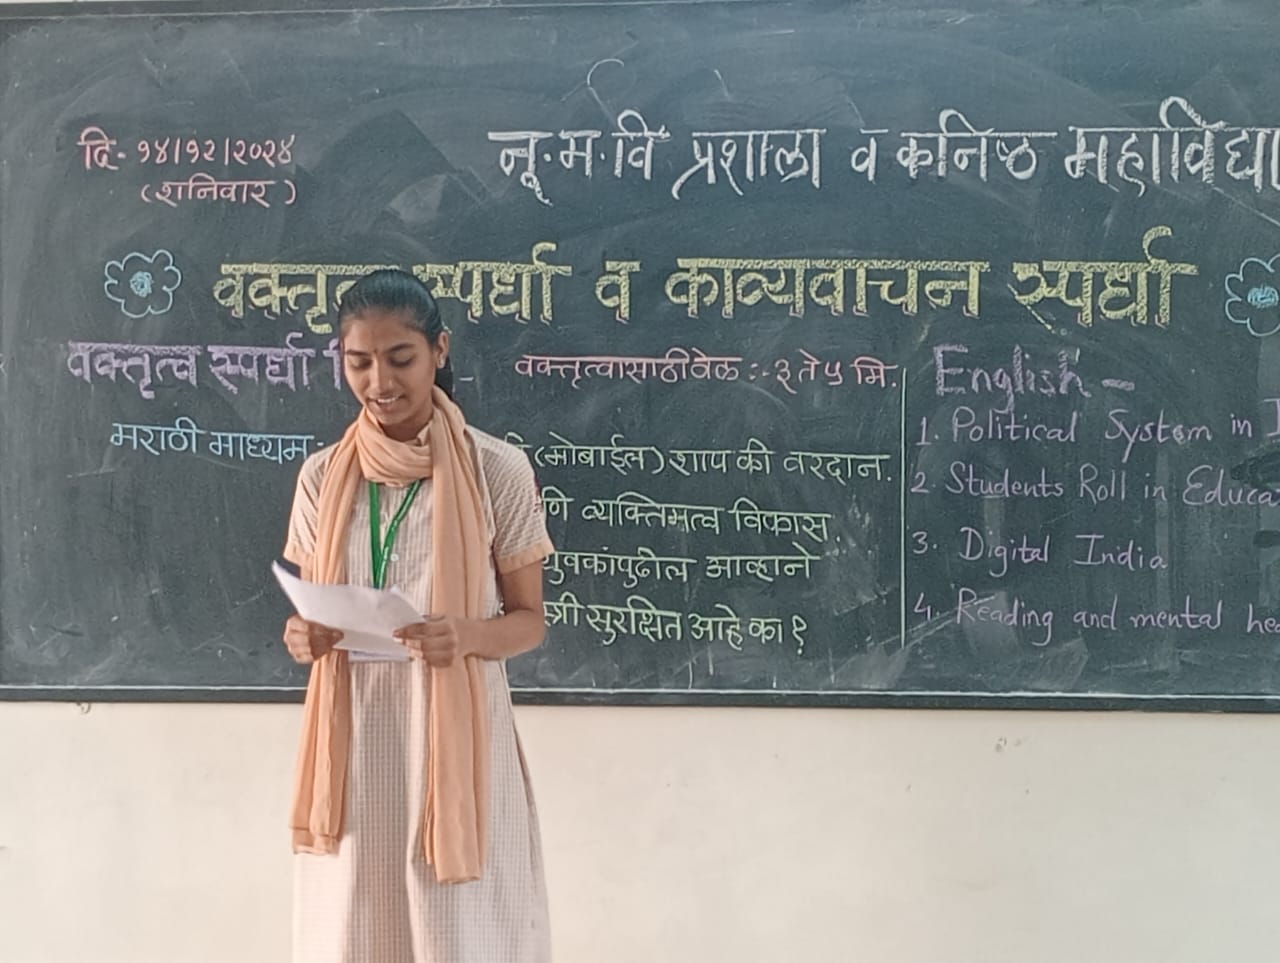 दि- १४/१२/२०२४
(शनिवार)
नू.म.वि प्रशाला व कनिष्ठ
स्पर्धा व काव्यवाचन स्पर्धा
वक्तृत्व स्पर्धा
वक्तृत्वासाठी वेळ :- ३ ते ५ मि.
मराठी माध्यम :-
(मोबाईल) शाप की वरदान.
व्यक्तिमत्व विकास.
युवकांपुढील आव्हाने
स्त्री सुरक्षित आहे का?
English -
1. Political System in
2. Students Roll in
3. Digital India
4. Reading and mental